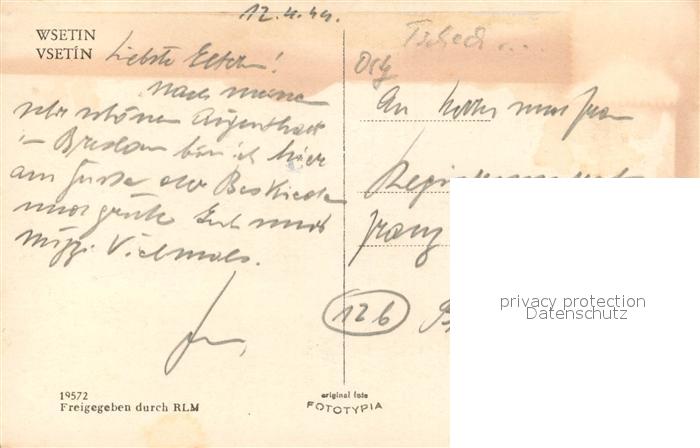 12.4.44.
WSETIN
VSETÍN
Liebste Eltern!
Nach meinem
sehr schönen Aufenthalt
in Breslau bin ich hier
am Fuße der Beskiden
und grüße Euch und
vielmals.
Tschech...
An Herrn und Frau
Franz
12b
19572
Freigegeben durch RLM
original foto
FOTOTYPIA
privacy protection
Datenschutz